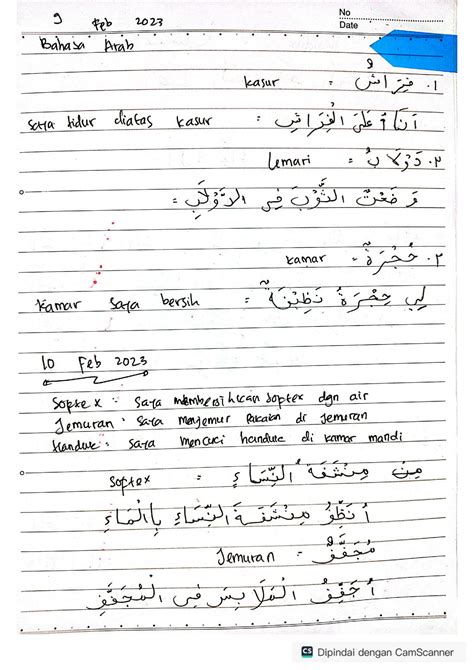 No
Date
9 Feb 2023
Bahasa Arab
١. فِرَاشٌ = kasur
أَنَا عَلَى الْفِرَاشِ = saya tidur diatas kasur
٢. دَوْلَابٌ = lemari
وَضَعْتُ الثَّوْبَ فِي الدَّوْلَابِ =
٣. حُجْرَةٌ = kamar
لِي حِجْرَةٌ نَظِيْفَةٌ = kamar saya bersih
10 Feb 2023
Soptex : saya membersihkan soptex dgn air
Jemuran : saya menjemur Pakaian di jemuran
Handuk : saya mencuci handuk di kamar mandi
مِنْ مِنْشَفَةِ النِّسَاءِ = soptex
أُنَظِّفُ مِنْشَفَةَ النِّسَاءِ بِالْمَاءِ
مُجَفِّفٌ = Jemuran
أُجَفِّفُ الْمَلَابِسَ فِي الْمُجَفِّفِ
CS Dipindai dengan CamScanner